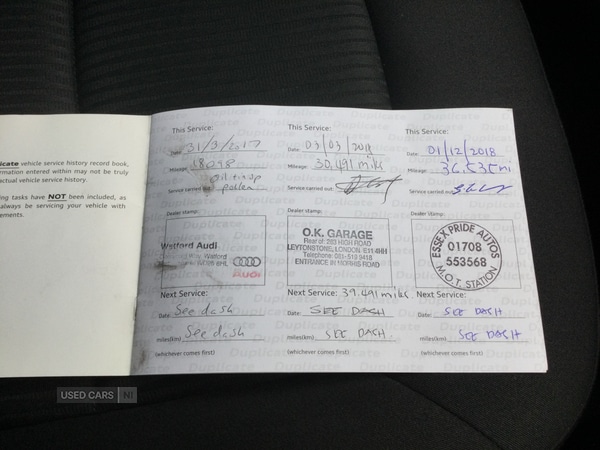 icate vehicle service history record book,
ormation entered within may not be truly
actual vehicle service history.
ing tasks have NOT been included, as
always be servicing your vehicle with
ements.
This Service:
Date: 31/3/2017
Mileage: 18098
Service carried out: Oil + insp
pollen
Dealer stamp:
Watford Audi
Watford
Audi
Next Service:
Date: See dash
miles(km) See dash
(whichever comes first)
This Service:
Date: 03/03/2018
Mileage: 30.491 mils
Service carried out:
Dealer stamp:
O.K. GARAGE
Rear of: 283 HIGH ROAD
LEYTONSTONE, LONDON. E11 4HH
Telephone: 081-519 9418
ENTRANCE IN MORRIS ROAD
Next Service: 39.491 miles
Date: SEE DASH
miles(km) SEE DASH
(whichever comes first)
This Service:
Date: 01/12/2018
Mileage: 36.535 mi
Service carried out:
Dealer Stamp:
ESSEX PRIDE AUTOS
01708
553568
M.O.T. STATION
Next Service:
Date: SEE DASH
miles(km) SEE DASH
(whichever comes first)
Duplicate
USED CARS NI